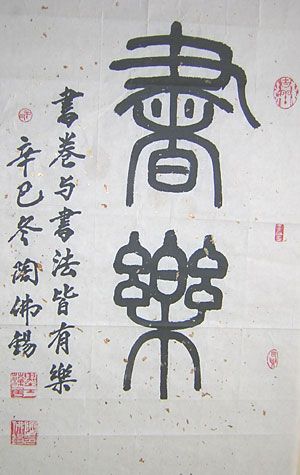 書樂
書卷与書法皆有樂
辛巳冬陶佛錫